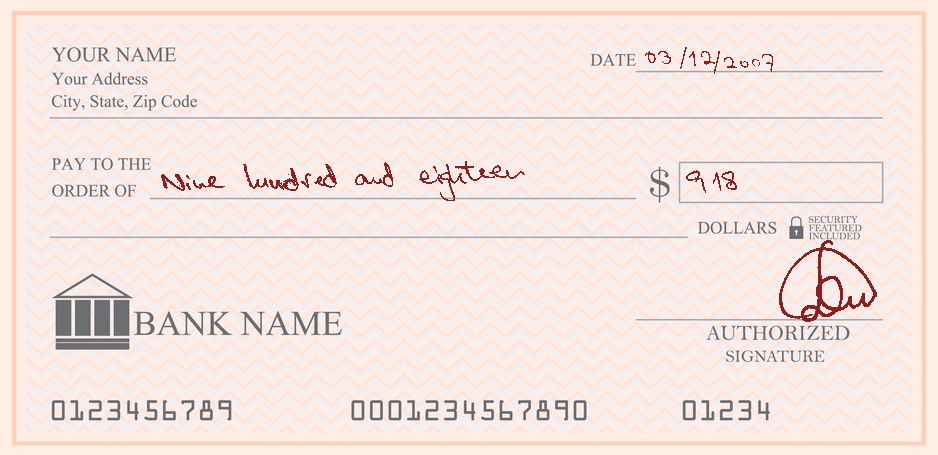 YOUR NAME
Your Address
City, State, Zip Code
DATE 03/12/2007
PAY TO THE
ORDER OF Nine hundred and eighteen $ 918
DOLLARS
SECURITY
FEATURED
INCLUDED
BANK NAME
AUTHORIZED
SIGNATURE
0123456789 0001234567890 01234